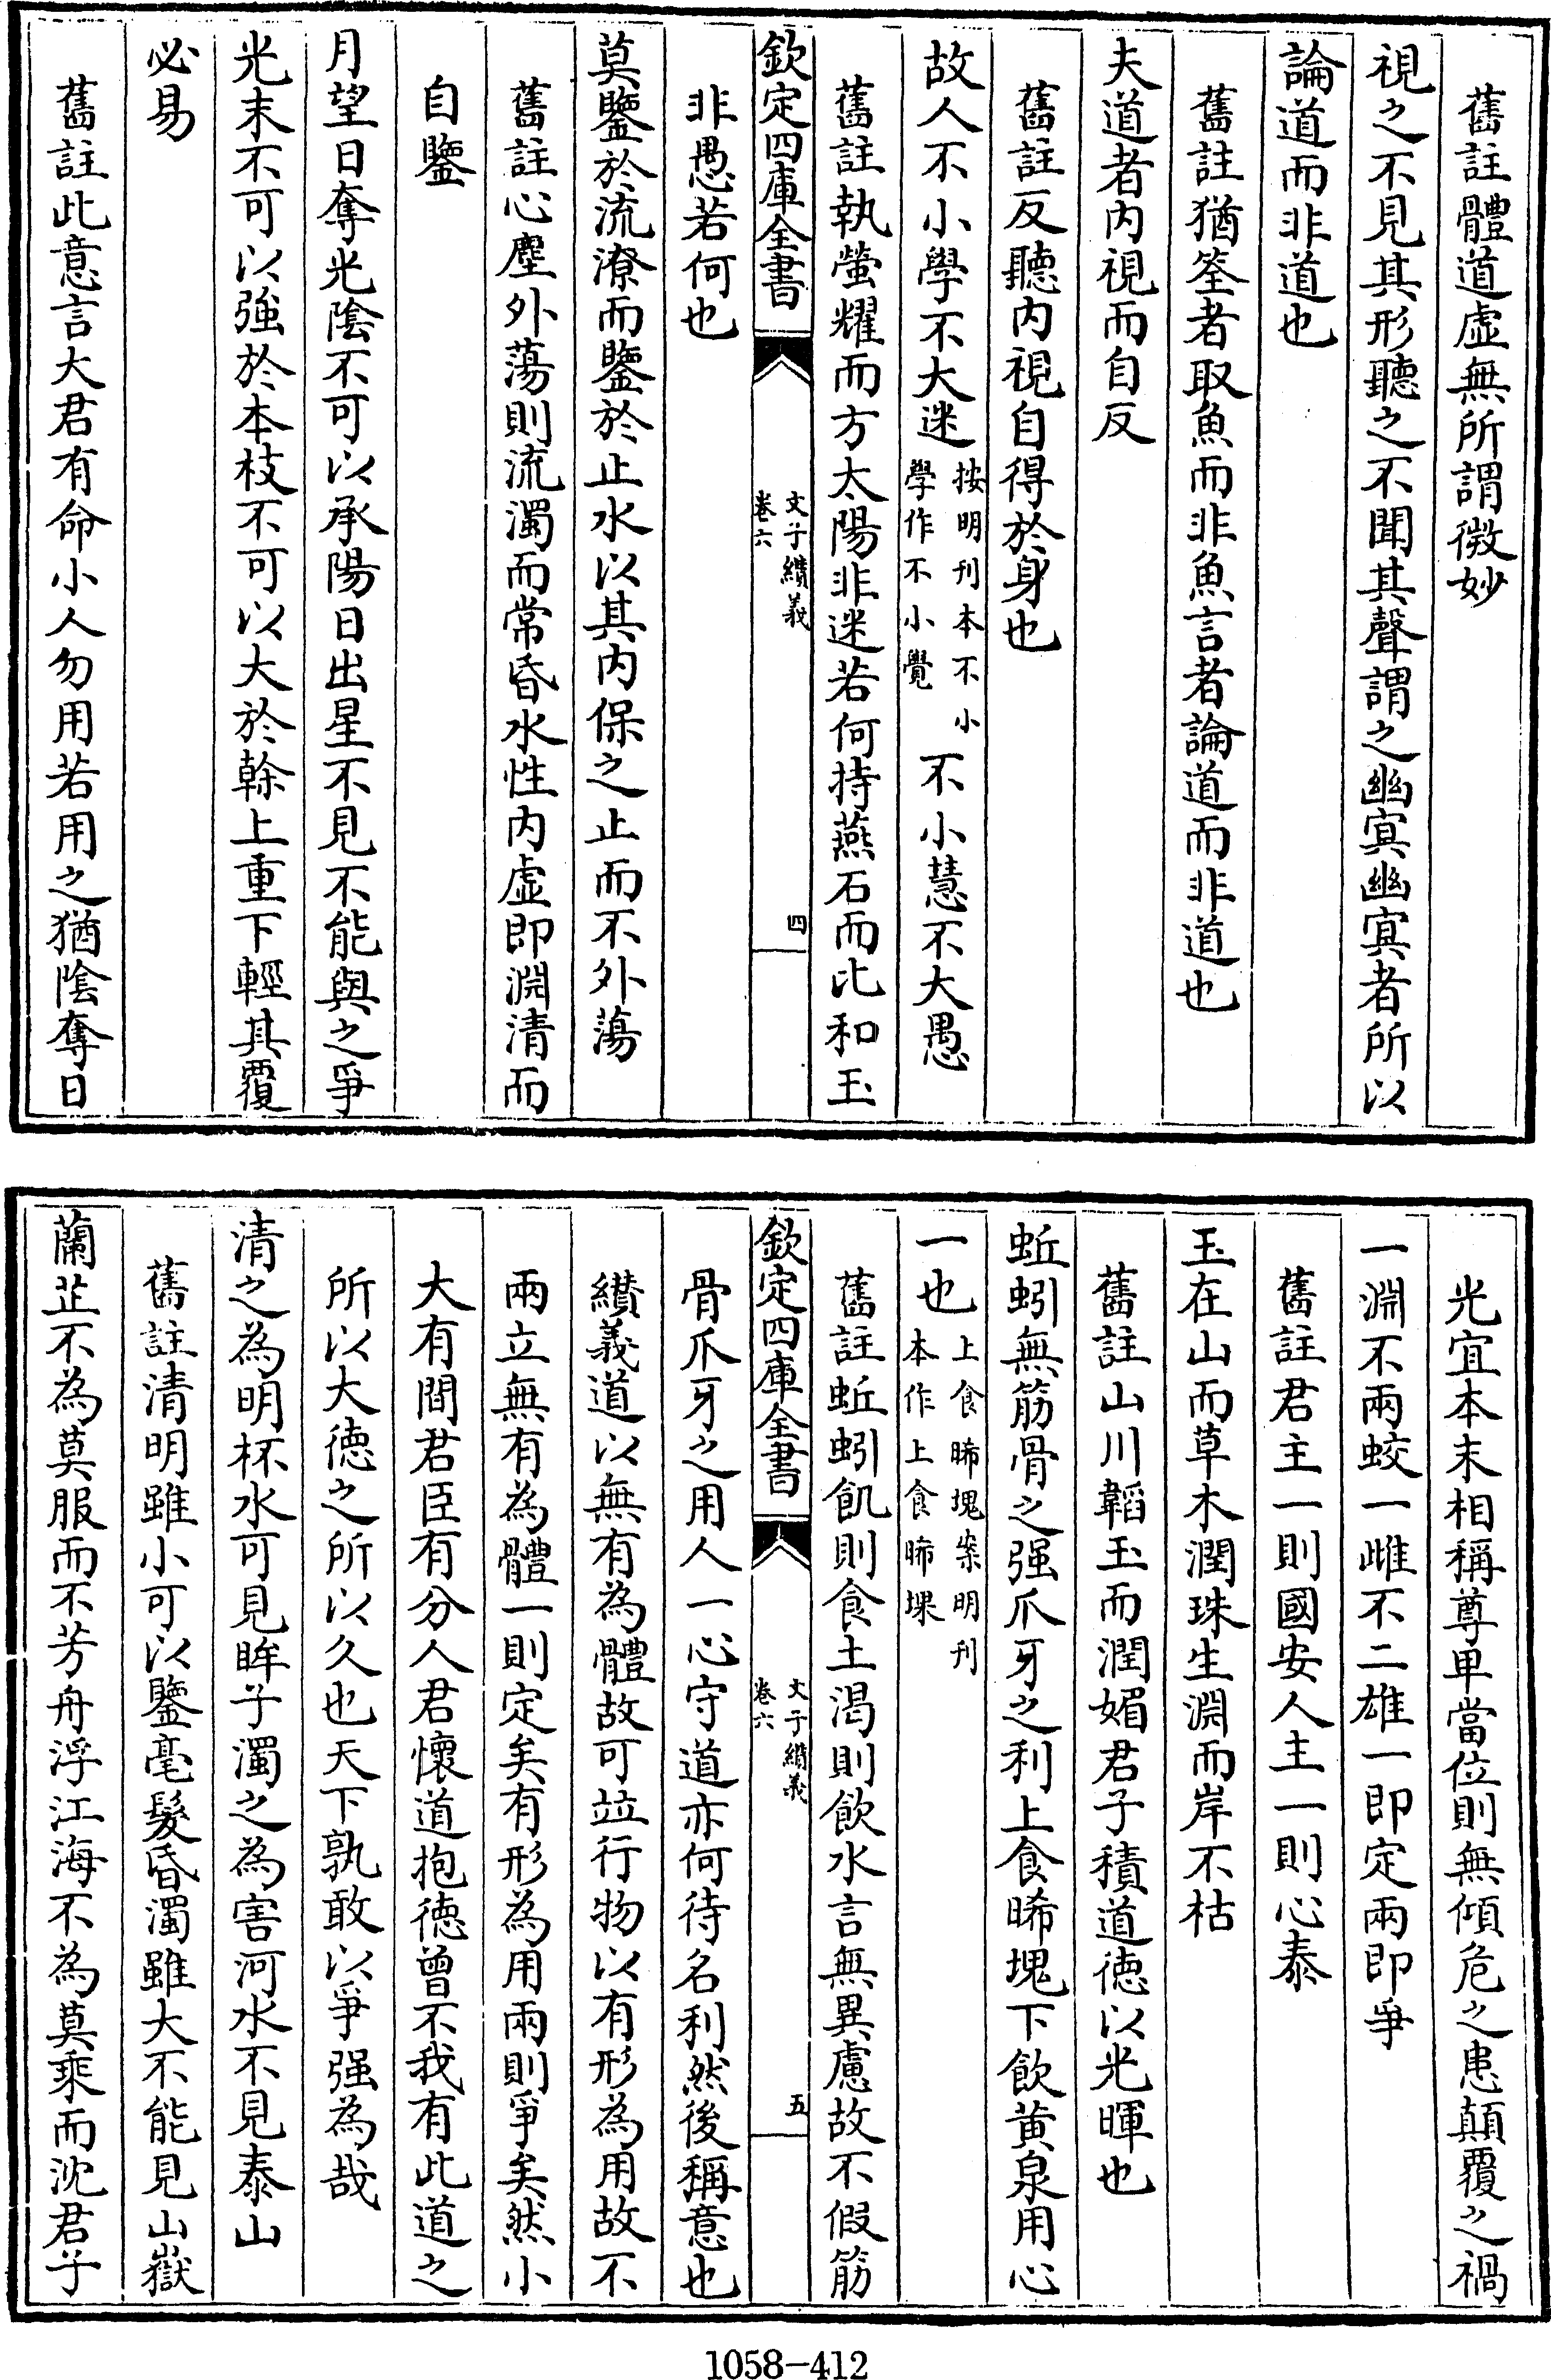 舊註體道虛無所謂微妙
視之不見其形聽之不聞其聲謂之幽冥幽冥者所以
論道而非道也
舊註猶筌者取魚而非魚言者論道而非道也
夫道者内視而自反
舊註反聽内視自得於身也
故人不小學不大迷按明刊本不小學作不小覺不小慧不大愚
舊註執螢耀而方太陽非迷若何持燕石而比和玉
欽定四庫全書
文子纘義
卷六
四
非愚若何也
莫鑒於流潦而鑒於止水以其内保之止而不外蕩
舊註心塵外蕩則流濁而常昏水性内虛即淵清而
自鑒
月望日奪光陰不可以承陽日出星不見不能與之爭
光末不可以強於本枝不可以大於榦上重下輕其覆
必易
舊註此意言大君有命小人勿用若用之猶陰奪日
光宜本末相稱尊卑當位則無傾危之患顛覆之禍
一淵不兩蛟一雌不二雄一即定兩即爭
舊註君主一則國安人主一則心泰
玉在山而草木潤珠生淵而岸不枯
舊註山川韜玉而潤媚君子積道德以光暉也
蚯蚓無筋骨之强爪牙之利上食晞塊下飲黄泉用心
一也上食晞塊案明刊本作上食晞堁
舊註蚯蚓飢則食土渴則飲水言無異慮故不假筋
欽定四庫全書
文子纘義
卷六
五
骨爪牙之用人一心守道亦何待名利然後稱意也
纘義道以無有為體故可竝行物以有形為用故不
兩立無有為體一則定矣有形為用兩則爭矣然小
大有間君臣有分人君懷道抱德曾不我有此道之
所以大德之所以久也天下孰敢以爭强為哉
清之為明杯水可見眸子濁之為害河水不見泰山
舊註清明雖小可以鑒毫髮昏濁雖大不能見山嶽
蘭芷不為莫服而不芳舟浮江海不為莫乘而沈君子
1058-412